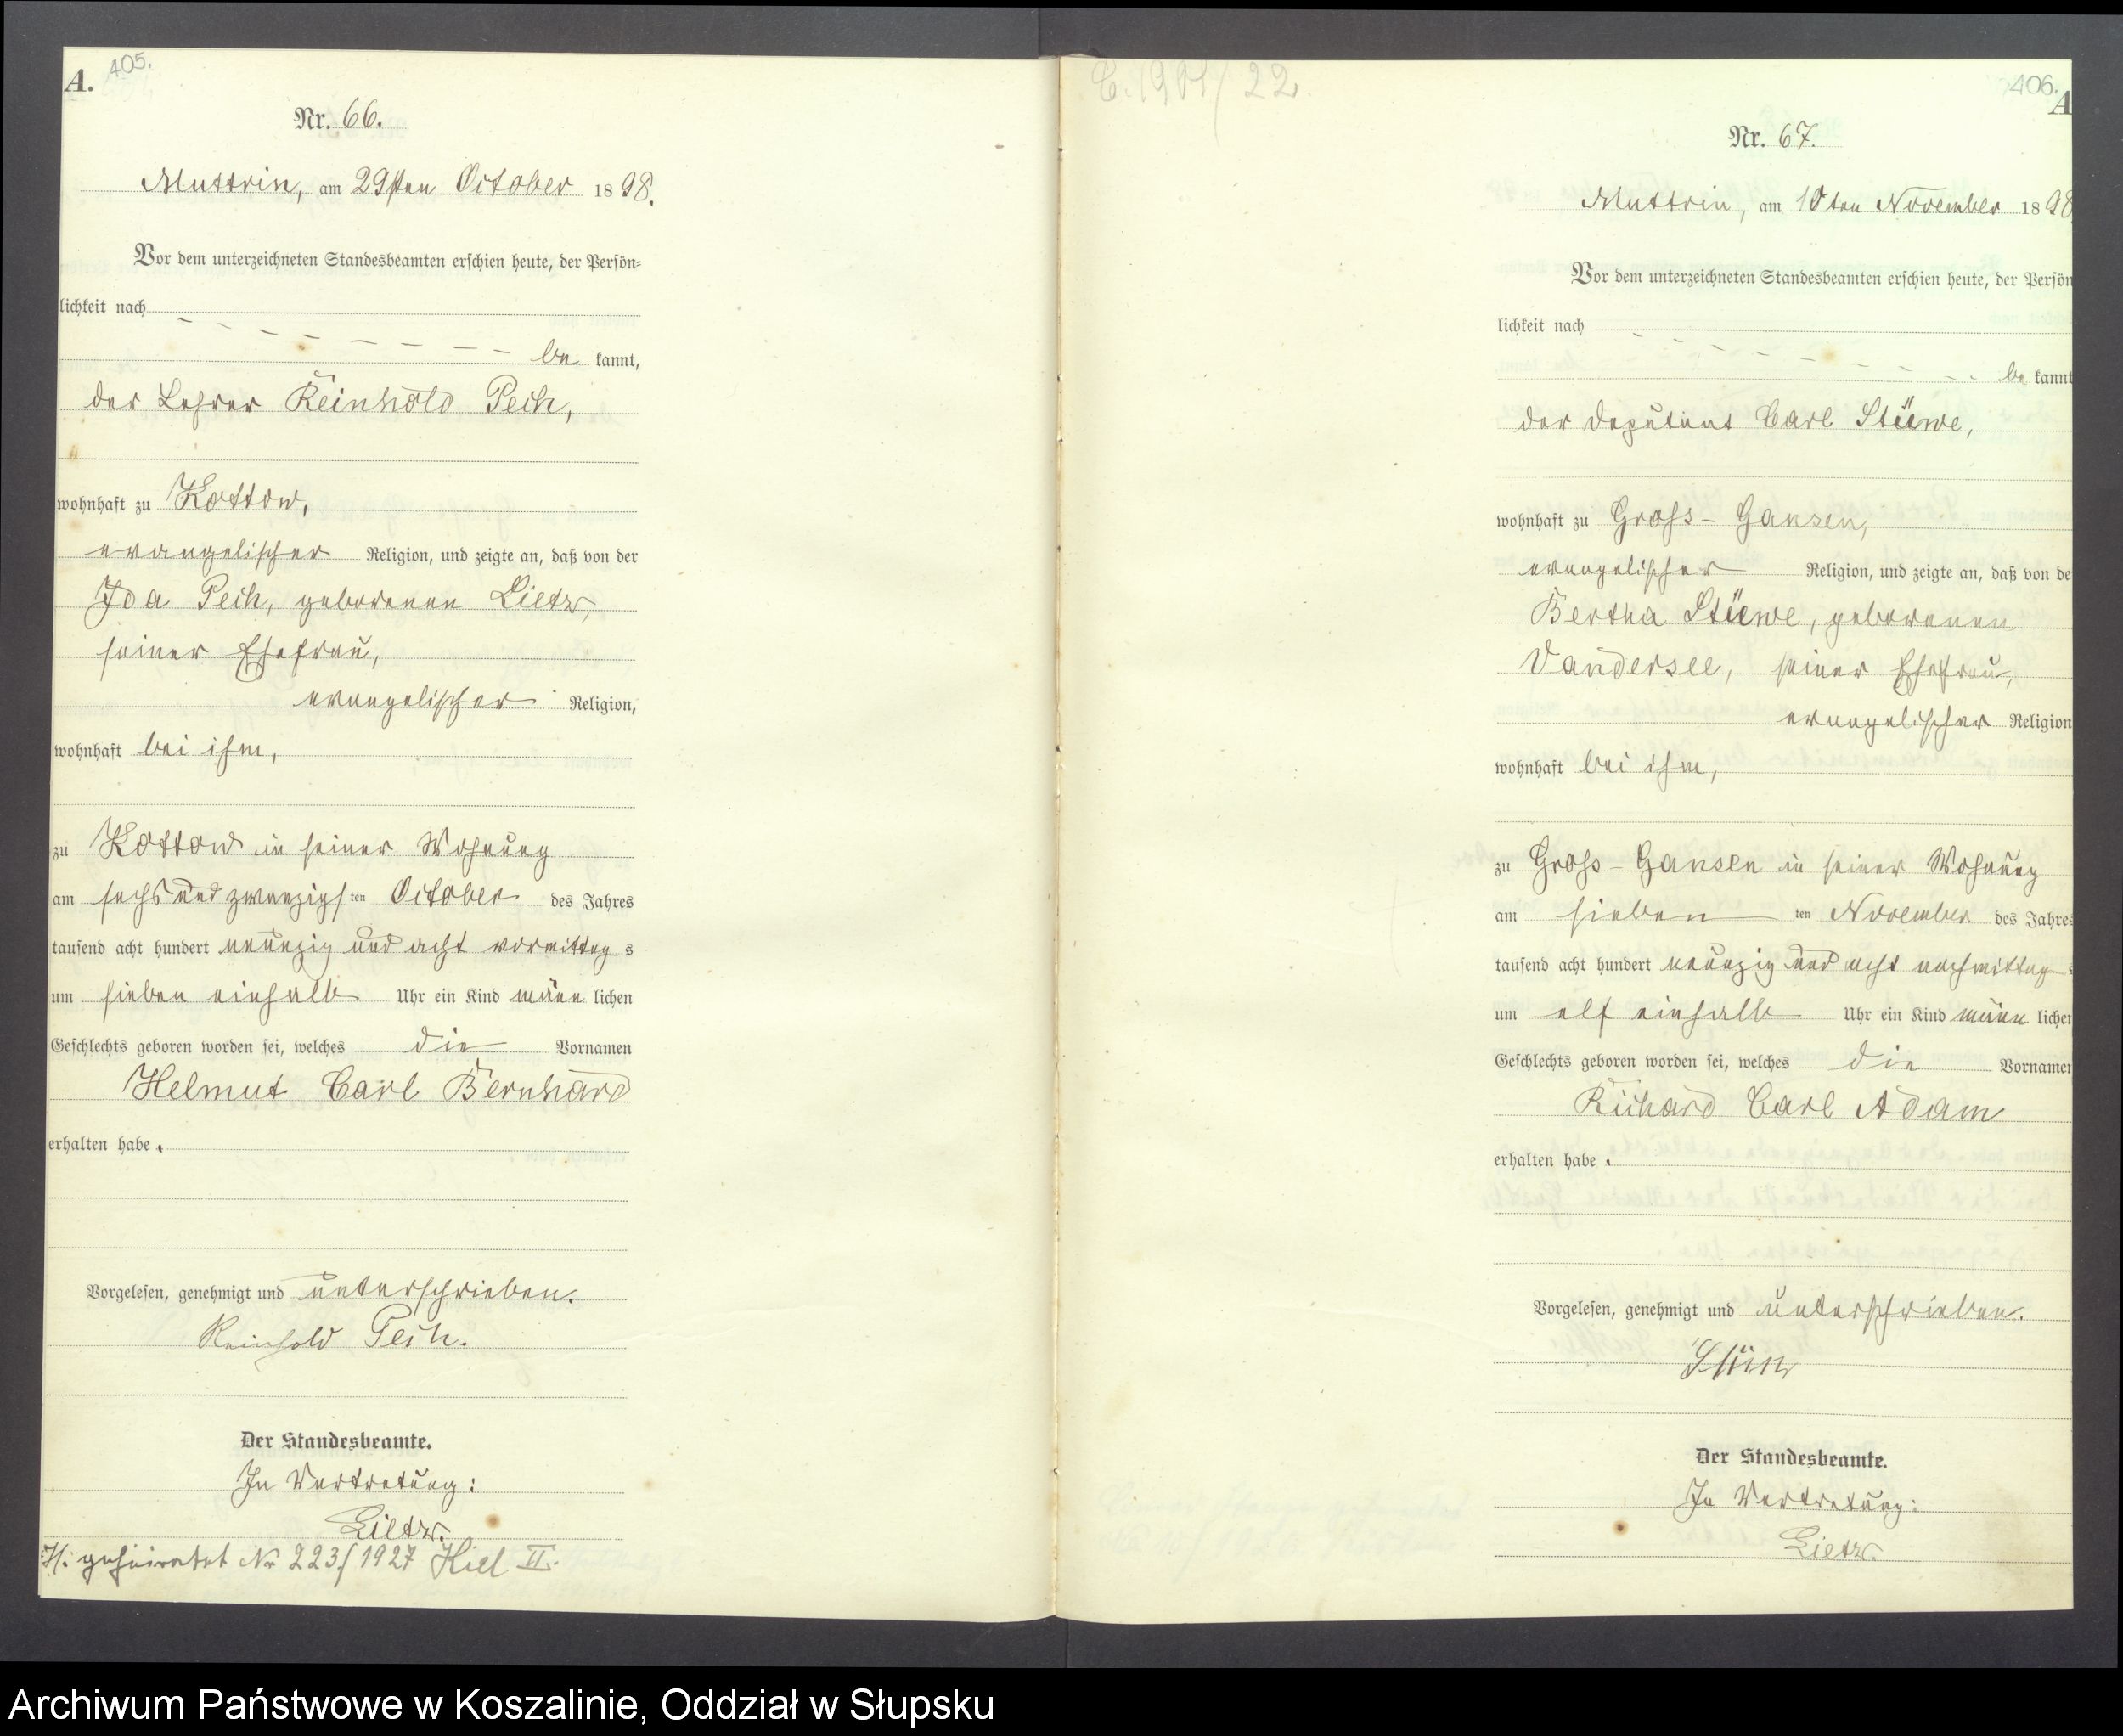 A. 405.
Nr. 66.
Muttrin, am 29sten October 1898.
Vor dem unterzeichneten Standesbeamten erschien heute, der Persön-
lichkeit nach
be kannt,
der Lehrer Reinhold Pech,
wohnhaft zu Kottow,
evangelischer Religion, und zeigte an, daß von der
Ida Pech, geborenen Lietz,
seiner Ehefrau,
evangelischer Religion,
wohnhaft bei ihm,
zu Kottow in seiner Wohnung
am sechs und zwanzigsten October des Jahres
tausend acht hundert neunzig und acht vormittag s
um sieben einhalb Uhr ein Kind männ lichen
Geschlechts geboren worden sei, welches die Vornamen
Helmut Carl Bernhard
erhalten habe.
Vorgelesen, genehmigt und unterschrieben.
Reinhold Pech.
Der Standesbeamte.
In Vertretung:
Lietz.
H. geheiratet Nr 223/1927 Kiel II.
C. 1901/22.
406.
A
Nr. 67.
Muttrin, am 10ten November 1898
Vor dem unterzeichneten Standesbeamten erschien heute, der Persön
lichkeit nach
be kannt
der Deputant Carl Stüwe,
wohnhaft zu Gross-Gansen,
evangelischer Religion, und zeigte an, daß von de
Bertha Stüwe, geborenen
Vandersee, seiner Ehefrau,
evangelischer Religion
wohnhaft bei ihm,
zu Gross-Gansen in seiner Wohnung
am sieben ten November des Jahres
tausend acht hundert neunzig und acht nachmittag
um elf einhalb Uhr ein Kind männ lichen
Geschlechts geboren worden sei, welches die Vornamen
Richard Carl Adam
erhalten habe.
Vorgelesen, genehmigt und unterschrieben.
Der Standesbeamte.
In Vertretung:
Lietz.
Archiwum Państwowe w Koszalinie, Oddział w Słupsku